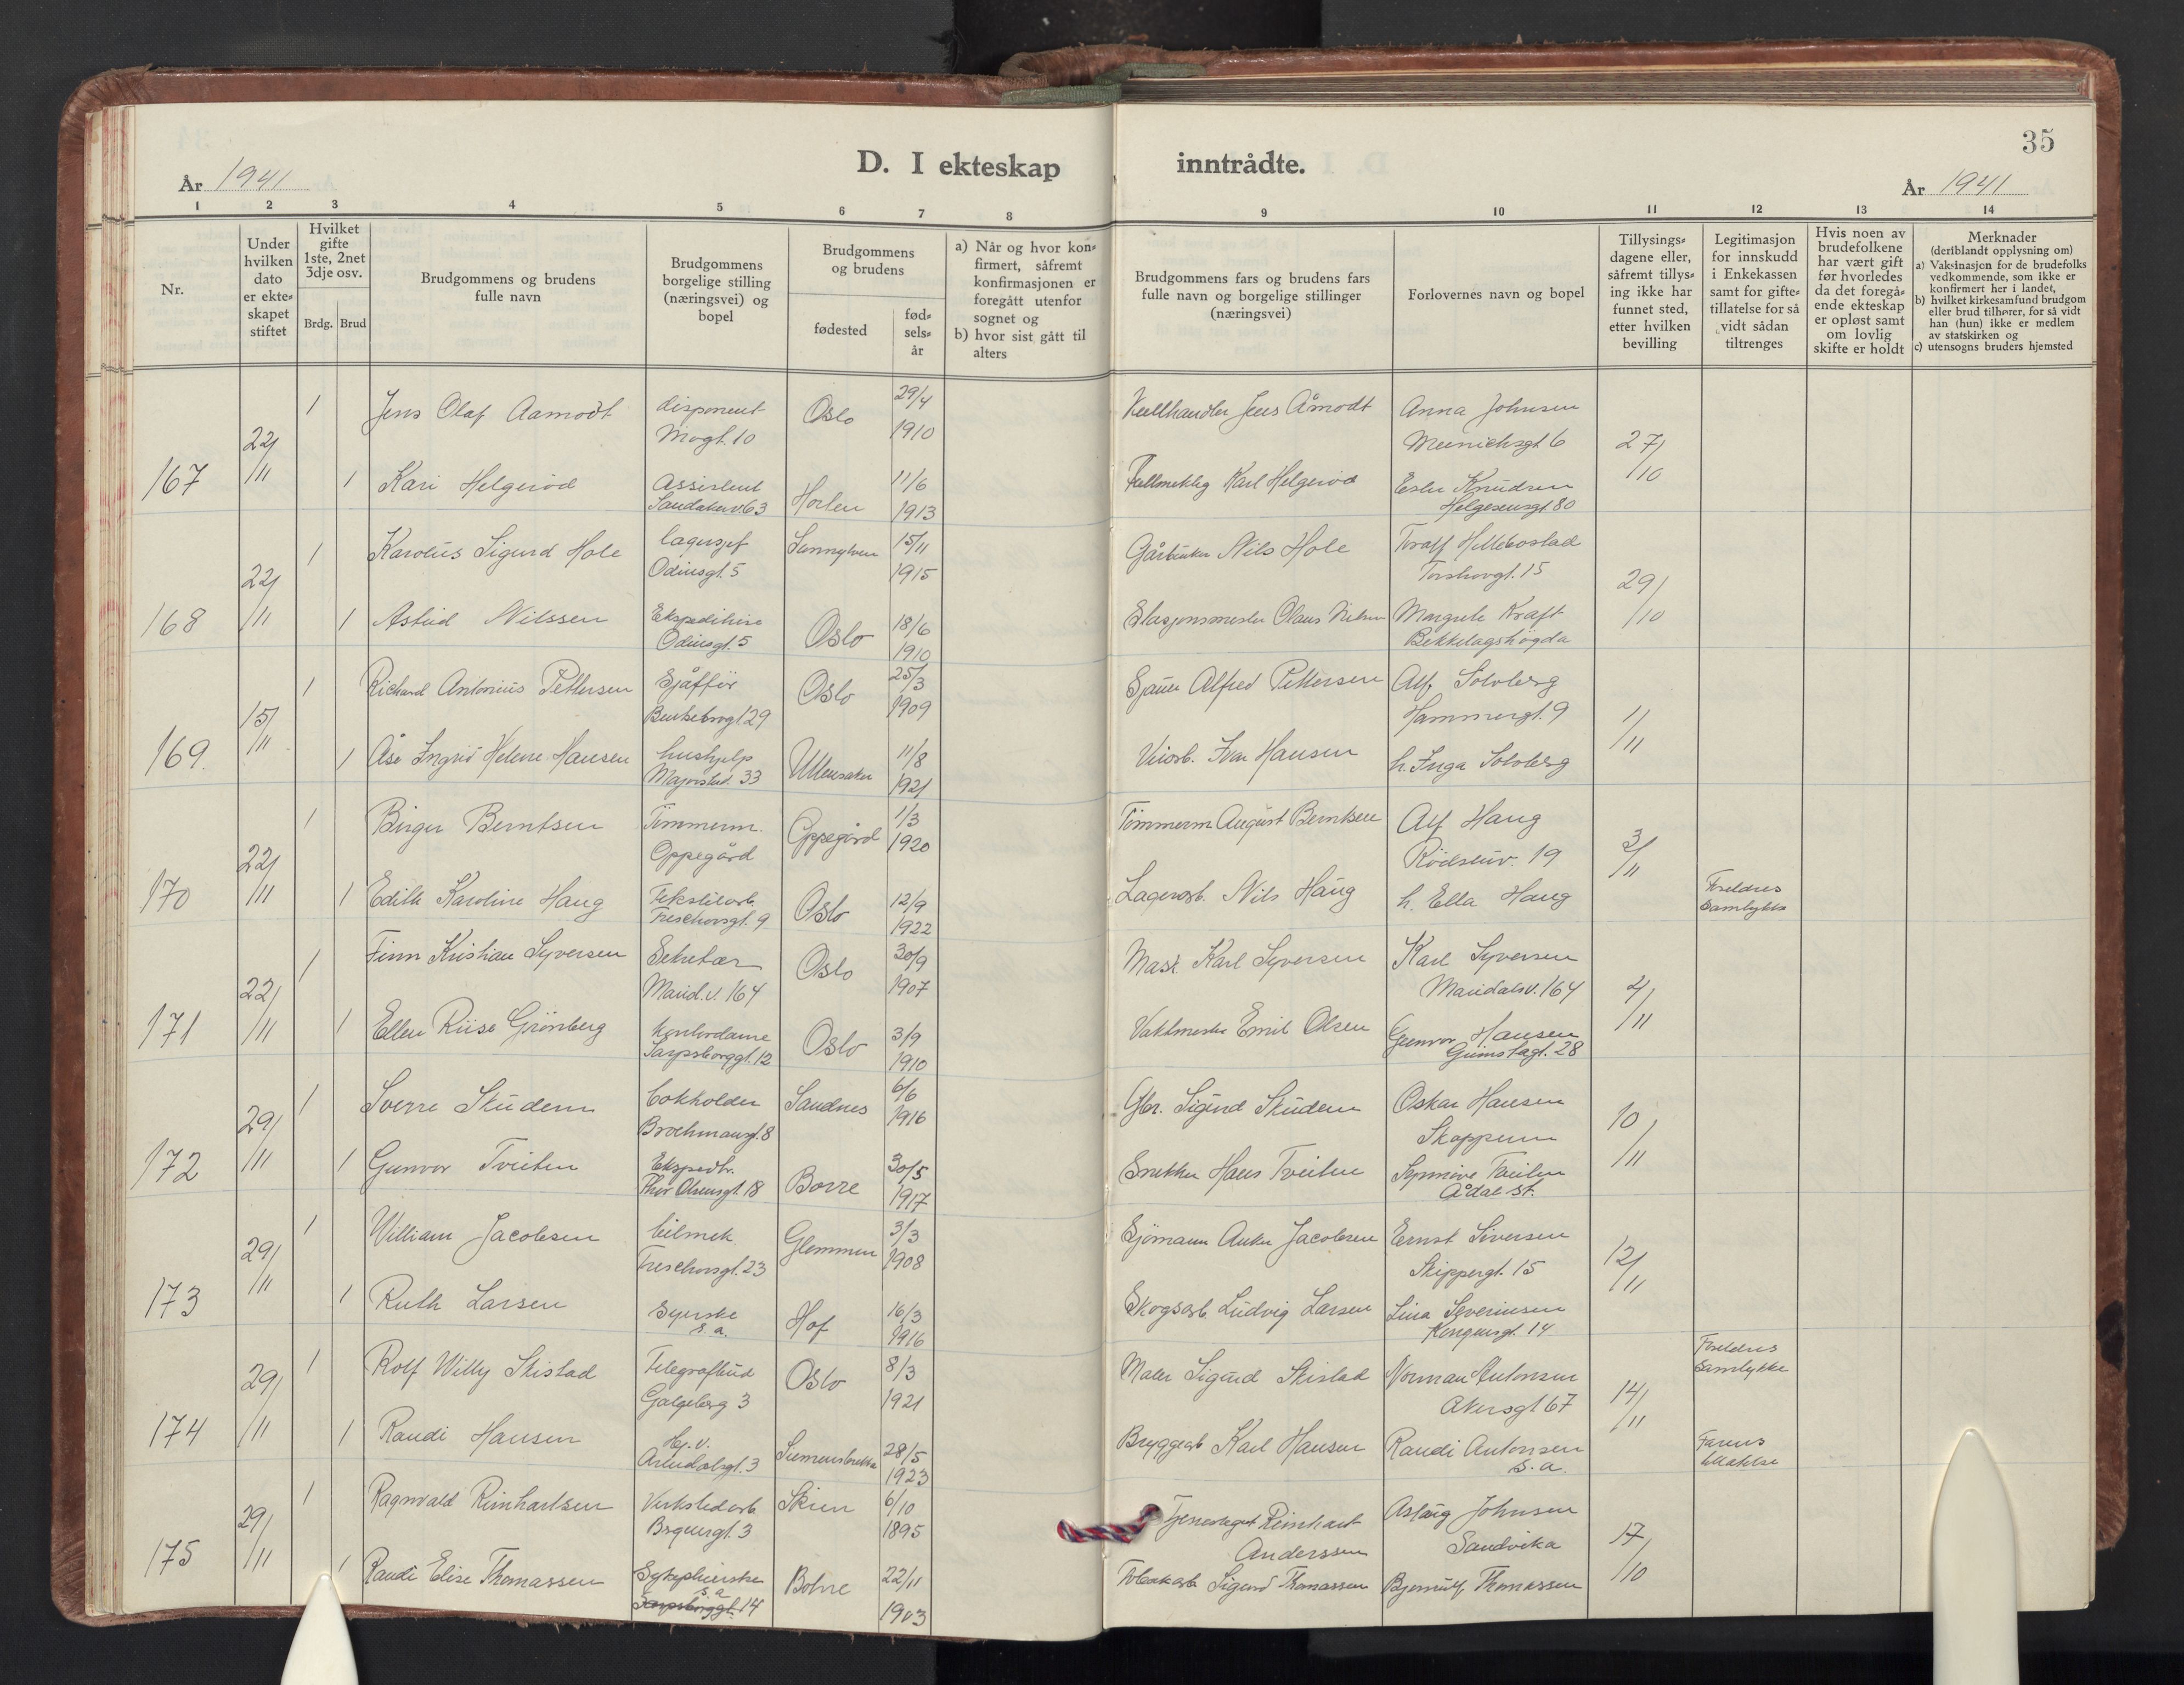 35
D. I ekteskap inntrådte.
År 1941
År 1941
1 2 3 4 5 6 7 8 9 10 11 12 13 14
Nr.
Under
hvilken
dato
er ekte=
skapet
stiftet
Hvilket
gifte
1ste, 2net
3dje osv.
Brdg. Brud
Brudgommens og brudens
fulle navn
Brudgommens
borgelige stilling
(næringsvei) og
bopel
Brudgommens
og brudens
fødested
fød=
sels=
år
a) Når og hvor kon=
firmert, såfremt
konfirmasjonen er
foregått utenfor
sognet og
b) hvor sist gått til
alters
Brudgommens fars og brudens fars
fulle navn og borgelige stillinger
(næringsvei)
Forlovernes navn og bopel
Tillysings=
dagene eller,
såfremt tillys=
ing ikke har
funnet sted,
etter hvilken
bevilling
Legitimasjon
for innskudd
i Enkekassen
samt for gifte=
tillatelse for så
vidt sådan
tiltrenges
Hvis noen av
brudefolkene
har vært gift
før hvorledes
da det foregå=
ende ekteskap
er opløst samt
om lovlig
skifte er holdt
Merknader
(deriblandt opplysning om)
a) Vaksinasjon for de brudefolks
vedkommende, som ikke er
konfirmert her i landet,
b) hvilket kirkesamfund brudgom
eller brud tilhører, for så vidt
han (hun) ikke er medlem
av statskirken og
c) utensogns bruders hjemsted
1 Jens Olaf Aamodt disponent Oslo 29/4 Jens Åmodt Anna Johnsen
22/11 10 1910 6 27/10
167 1 Kari Helgerød Assistent Horten 11/6 Karl Helgerød Knudsen
63 1913 Helgesensgt 80
1 Karolus Sigurd Hole lagersjef 15/11 Nils Hole Toralf Hillebostad
22/11 Odinsgt. 5 1915 Torshovgt. 15 29/10
168 1 Astrid Nilssen Oslo 18/6 Stasjonsmester Olaus Margrete Kraft
Odinsgt. 5 1910 Bekkelagshøgda
1 Richard Antonius Pettersen Sjåffør Oslo 25/3 Alfred Pettersen Alf Solvberg
15/11 29 1909 Hammergt. 9 1/11
169. 1 Åse Ingrid Helene Hansen hushjelp Ullensaker 11/8 Hansen h. Inga Solvberg
33 1921
1 Birger Berntsen Tømmerm. Oppegård 1/3 Tømmerm August Berntsen Alf Haug
22/11 Oppegård 1920 19 3/11
170 1 Edith Karoline Haug Tekstilarb. Oslo 12/9 Lagerarb. Nils Haug h. Ella Haug Foreldres
Treschowsgt. 9 1922 samtykke
1 Finn Kristian Syversen Sekretær Oslo 30/9 Mask. Karl Syversen Karl Syversen
22/11 Marid.v. 164 1907 Maridalsv. 164 4/11
171 1 Ellen Riise Grønberg Kontordame Oslo 3/9 Vaktmester Emil Olsen Gunvor Hansen
Sarpsborggt. 12 1910 28
1 Sverre Skudem Sandnes 6/6 Gbr. Sigurd Skudem Oskar Hansen
29/11 8 1916 Skoppum 10/11
172 1 Gunvor Tveiten Ekspedtr. Borre 30/5 Snekker Hans Tveiten Synnøve Tveiten
Thor Olsensgt. 18 1917 Ådal st.
1 William Jacobsen bilmek. Glemmen 3/3 Sjømann Jacobsen Ernst Siversen
29/11 Treschowsgt. 23 1908 Skippergt. 15 12/11
173 1 Ruth Larsen Syerske Hof 16/3 Skogsarb. Ludvig Larsen Lina Severinsen
s. a. 1916 Kongensgt. 14
1 Rolf Willy Skistad Telegrafbud Oslo 8/3 Maler Sigurd Skistad Norman Antonsen Foreldres
29/11 Galgeberg 3 1921 Akersgt 67 14/11 samtykke
174 1 Randi Hansen Hj. v. 28/5 Bryggearb Karl Hansen Randi Antonsen Farens
Arendalsgt. 3 1923 s. a. tillatelse
1 Ragnvald Reinhartsen Verkstedarb. Skien 6/10 Reinhart Aslaug Johnsen
29/11 3 1895 Anderssen Sandvika 17/10
175 1 Randi Elise Thomassen Sykepleierske 22/11 Sigurd Thomassen Thomassen
s a
Sarpsborggt. 14 1903